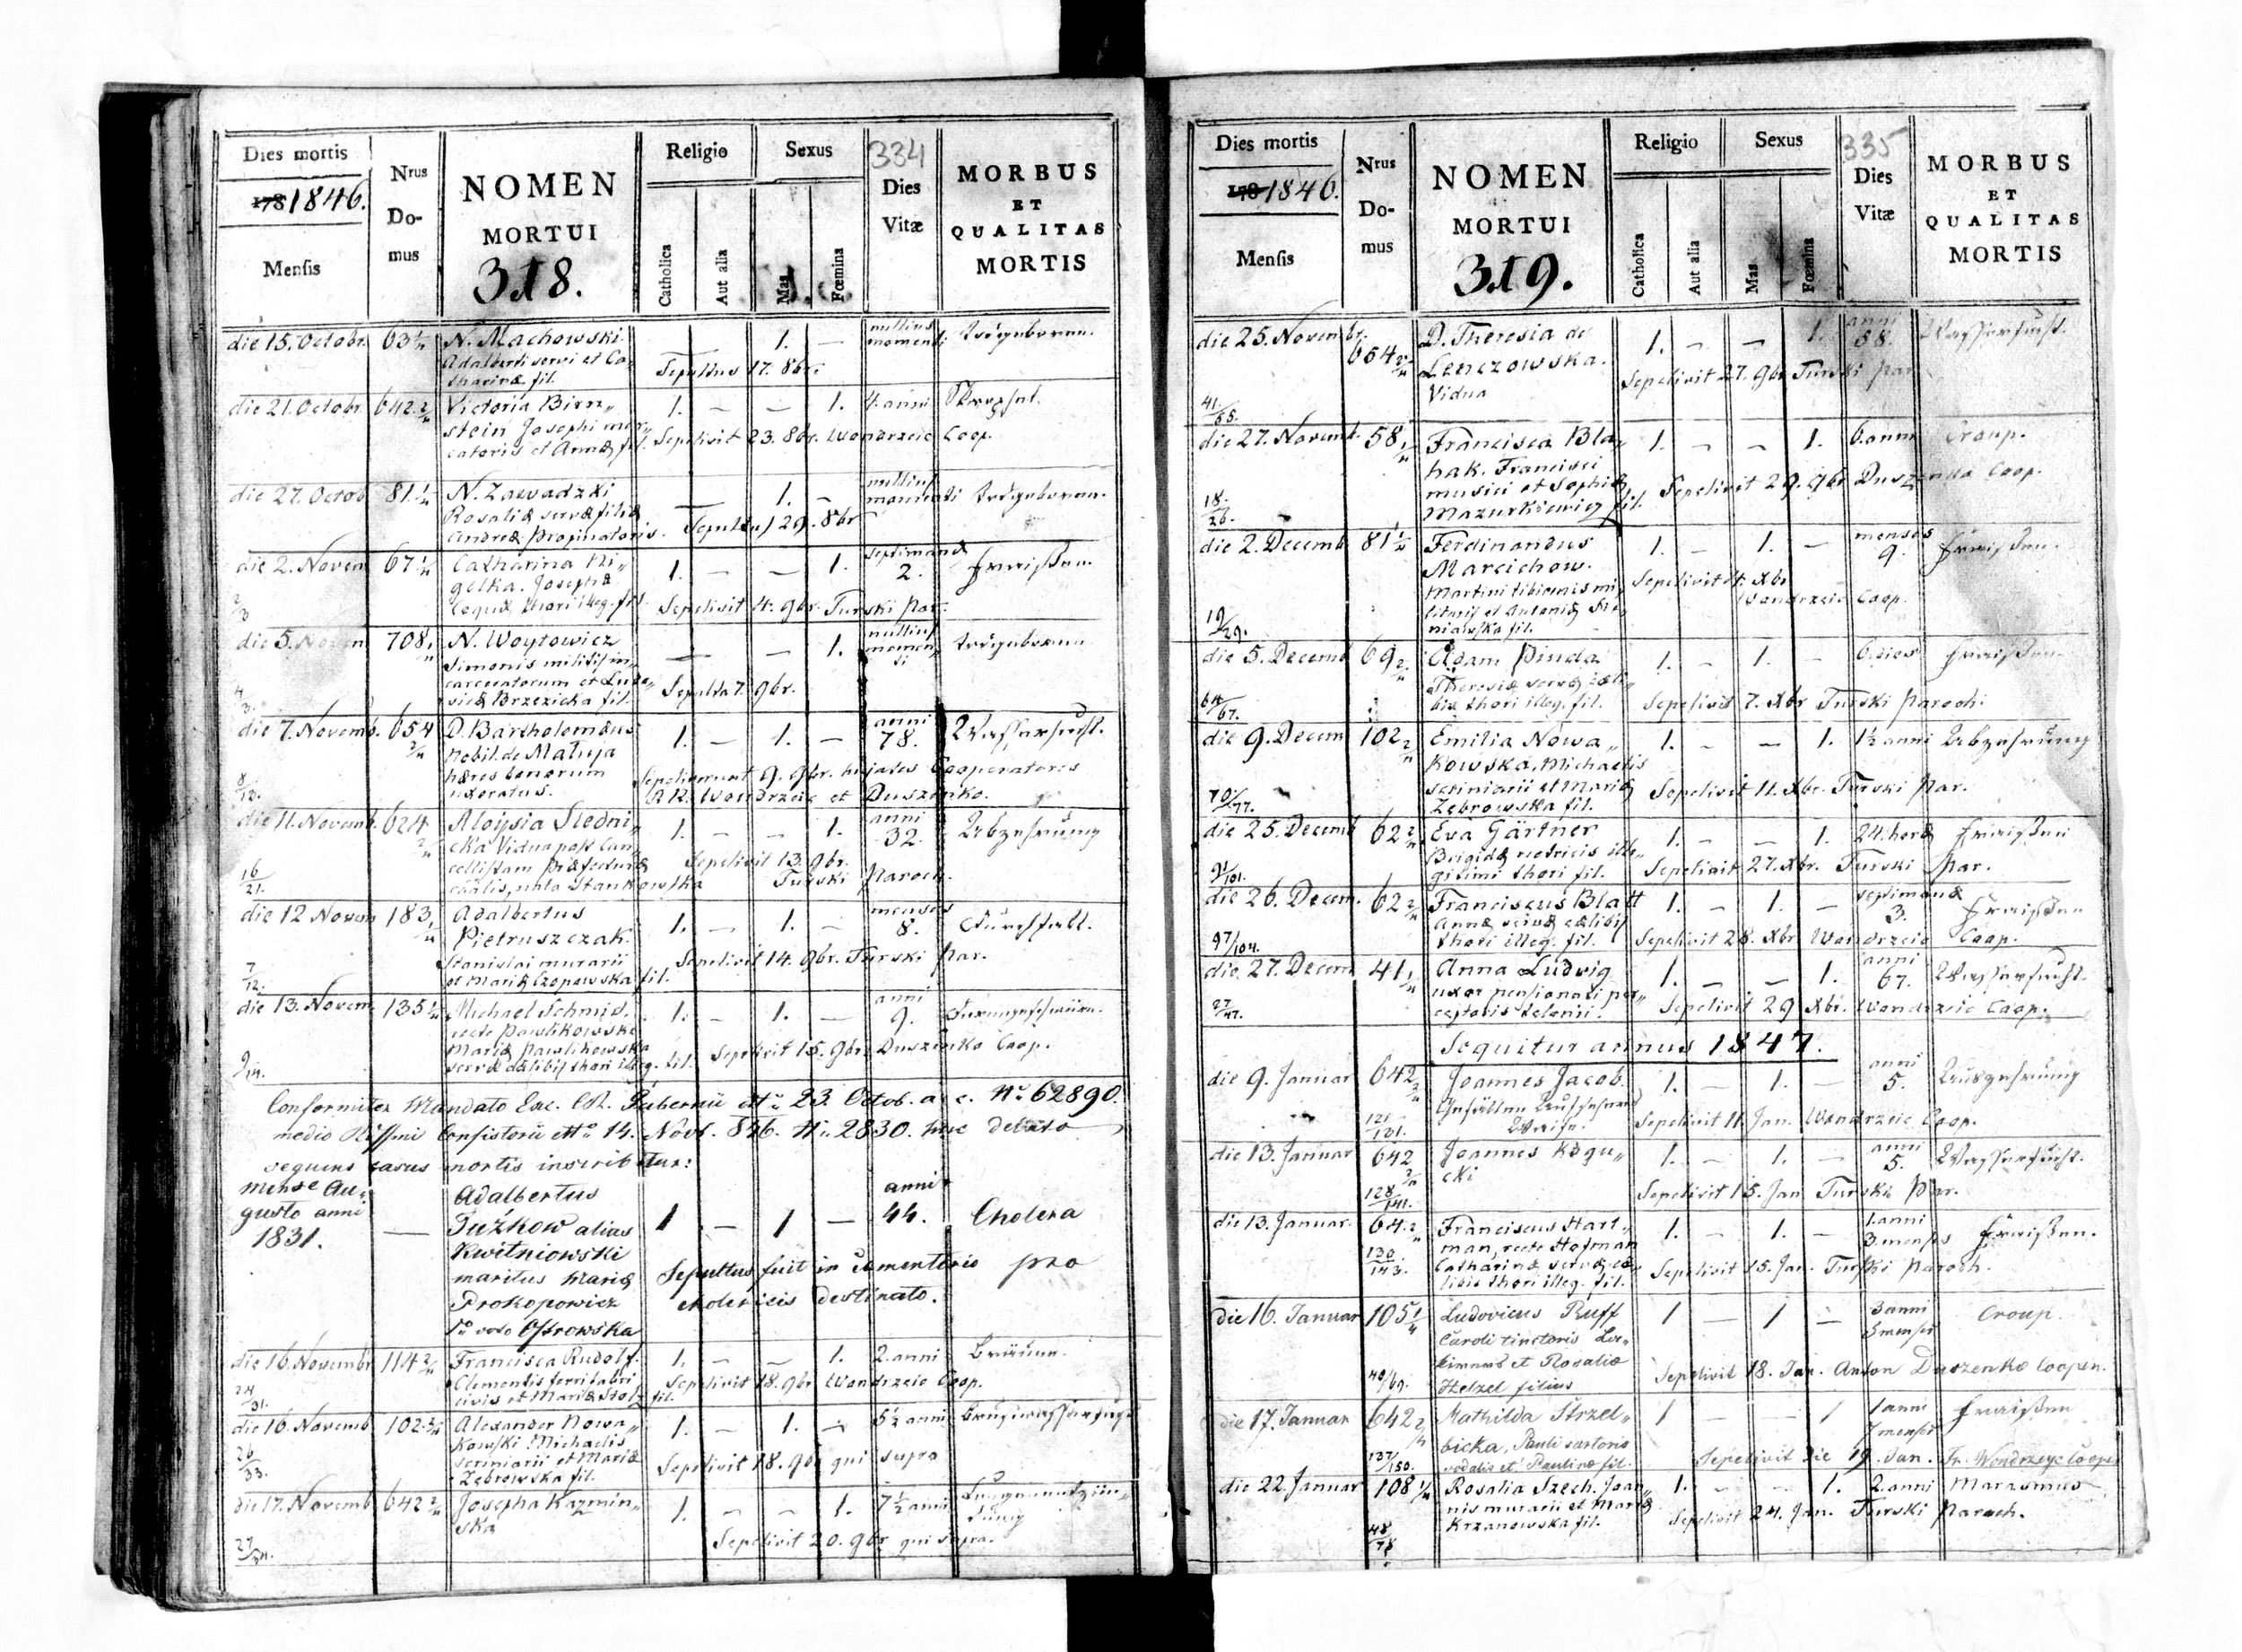 Dies mortis
Nrus
Do-
mus
NOMEN
MORTUI
Religio
Sexus
334
Dies
Vitæ
MORBUS
ET
QUALITAS
MORTIS
1846.
Mensis
318.
Catholica
Aut alia
Mas
Fœmina
die 15. Octobr. 63 N. Machowski. — 1. — nullius momenti
Adalberti servi et Ca-
tharinæ fil. Sepultus 17. 8br.
die 21. Octobr. 642. Victoria Birn„ 1. — — 1. 4. anni
stein Josephi mer„
catoris et Annæ fil. Sepelivit 23. 8br. Wondrzeic Coop.
die 27. Octob 81. N. Zawadzki — 1. — nullius momenti
Rosaliæ servæ filiæ
Andreæ propinatoris. Sepultus 29. 8br
die 2. Novem 67 Catharina Ni„ 1. — — 1. septimanæ 2. Fraisen.
gelka. Josephæ
coquæ thori illeg. fil. Sepelivit 4. 9br. Turski Par.
die 5. Novem 708. N. Woytowicz — — 1. nullius momenti
Simonis militis in„
carceratorum et Ludo„
vicæ Brzezicka fil. Sepulta 7. 9br.
die 7. Novemb. 654 D. Bartholomæus 1. — 1. — anni 78. Wassersucht.
Nobil. de Matuja
hæres bonorum
uxoratus. Sepelierunt 9. 9br. hujates Cooperatores
RR. Wondrzeic et Duszenko.
die 11. Novemb. 624 Aloysia Siedni„ 1. — — 1. anni 32. Abzehrung
cka Vidua post Can„
cellistam Præfecturæ
nata Stankowska Sepelivit 13. 9br. Turski Paroch.
die 12 Novem 183. Adalbertus 1. — 1. — menses 8. Durchfall.
Pietruszczak.
Stanislai murarii
et Mariæ Czopowska fil. Sepelivit 14. 9br. Turski Par.
die 13. Novem. 135 Michael Schmid. 1. — 1. — anni 9.
recte Pawlikowski
Mariæ Pawlikowska
servæ cælibis thori illeg. fil. Sepelivit 15. 9br. Duszenko Coop.
Conformiter Mandato Exc. CR. Gubernii 23. Octob. a. c. No 62890.
medio Rssmi Consistorii 14. Novb. 846. No 2830. huc delato
sequens casus mortis inscribitur:
mense Au„ gusto anni 1831. — Adalbertus 1 — 1 — anni 44. Cholera
Tużkow alias
Kwitniowski
maritus Mariæ Sepultus fuit in Cœmenterio pro
Prokopowicz cholericis destinato.
1o voto Ostrowska
die 16. Novembr 114 Francisca Rudolf. 1. — — 1. 2. anni Bräune.
Clementis ferri fabri
civis et Mariæ Stolz fil. Sepelivit 18. 9br Wondrzeic Coop.
die 16. Novemb 102. Alexander Nowa„ 1. — 1. — 5½ anni Brustwassersucht
kowski Michaelis
scriniarii et Mariæ
Zebrowska fil. Sepelivit 18. 9br qui supra
die 17. Novemb 642 Josepha Kazmin„ 1. — — 1. 7½ anni
ska Sepelivit 20. 9br qui supra.
Dies mortis
Nrus
Do-
mus
NOMEN
MORTUI
Religio
Sexus
335
Dies
Vitæ
MORBUS
ET
QUALITAS
MORTIS
1846.
Mensis
319.
Catholica
Aut alia
Mas
Fœmina
die 25. Novembr. 654 D. Theresia de 1. — — 1. anni 58. Wassersucht.
Lenczowska.
Vidua Sepelivit 27. 9br Turski Par
41./55.
die 27. Novemb. 58 Francisca Bla„ 1. — — 1. 6. anni Croup.
hak. Francisci
musici et Sophiæ
Mazurkiewicz fil. Sepelivit 29. 9br Duszenko Coop.
18./26.
die 2. Decemb 81 Ferdinandus 1. — 1. — menses 9. Fraisen.
Marcichow.
Martini tibicinis mi„
litaris et Antoniæ
fil. Sepelivit 4. Xbr Wondrzeic Coop.
19/29.
die 5. Decemb 69 Adam Pinda 1. — 1. — 6. dies Fraisen
Theresiæ servæ cæli„
bis thori illeg. fil. Sepelivit 7. Xbr Turski Paroch.
64/67.
die 9. Decem 102 Emilia Nowa„ 1. — — 1. 1½ anni Abzehrung
kowska, Michaelis
scriniarii et Mariæ
Zebrowska fil. Sepelivit 11. Xbr. Turski Par.
70/77.
die 25. Decemb 62 Eva Gärtner 1. — — 1. 24. horæ Fraisen
Brigidæ nutricis ille„
gitimi thori fil. Sepelivit 27. Xbr. Turski Par.
91/101.
die 26. Decem. 62 Franciscus Blatt 1. — 1. — septimanæ 3. Fraisen
Annæ servæ cælibis
thori illeg. fil. Sepelivit 28. Xbr Wondrzeic Coop.
97/104.
die 27. Decem 41 Anna Ludwig 1. — — 1. anni 67. Wassersucht.
uxor pensionati per„
ceptoris telonii. Sepelivit 29 Xbr. Wondrzeic Coop.
27/47.
Sequitur annus 1847.
die 9. Januar 642 Joannes Jacob. 1. — 1. — anni 5. Auszehrung
Gefällen Aufsehers
Waise. Sepelivit 11. Jan. Wondrzeic Coop.
121/131.
die 13. Januar 642 Joannes Rogu„ 1. — 1. — anni 5. Wassersucht.
cki Sepelivit 15. Jan Turski Par.
128/141.
die 13. Januar. 64. Franciscus Hart„ 1. — 1. — 1. anni 3. menses Fraisen.
man, recte Hofman
Catharinæ servæ cæ„
libis thori illeg. fil. Sepelivit 15. Jan. Turski Paroch.
130/143.
die 16. Januar 105 Ludovicus Ruff 1 — 1 — 3 anni 3 menses Croup.
Caroli tinctoris
et Rosaliæ
Helzel filius Sepelivit 18. Jan. Anton Duszenko Cooper.
40/69.
die 17. Januar 642 Mathilda Strzel„ 1 — — 1 1 anni 7 menses Fraisen
bicka, Pauli sartoris
sodalis et Paulinæ fil. Sepelivit die 19. Jan. Fr. Wondrzeyc Cooper
137/150.
die 22. Januar 108 Rosalia Szech. Joan„ 1. — — 1. 2. anni Marasmus
nis murarii et Mariæ
Krzanowska fil. Sepelivit 24. Jan. Turski Paroch.
48/78